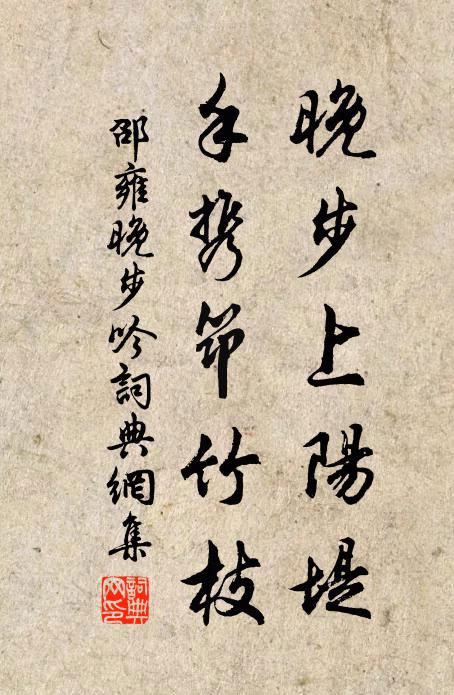 晚步上陽堤
手攜筇竹枝
邵雍晚步吟詞典網集
詞典網印